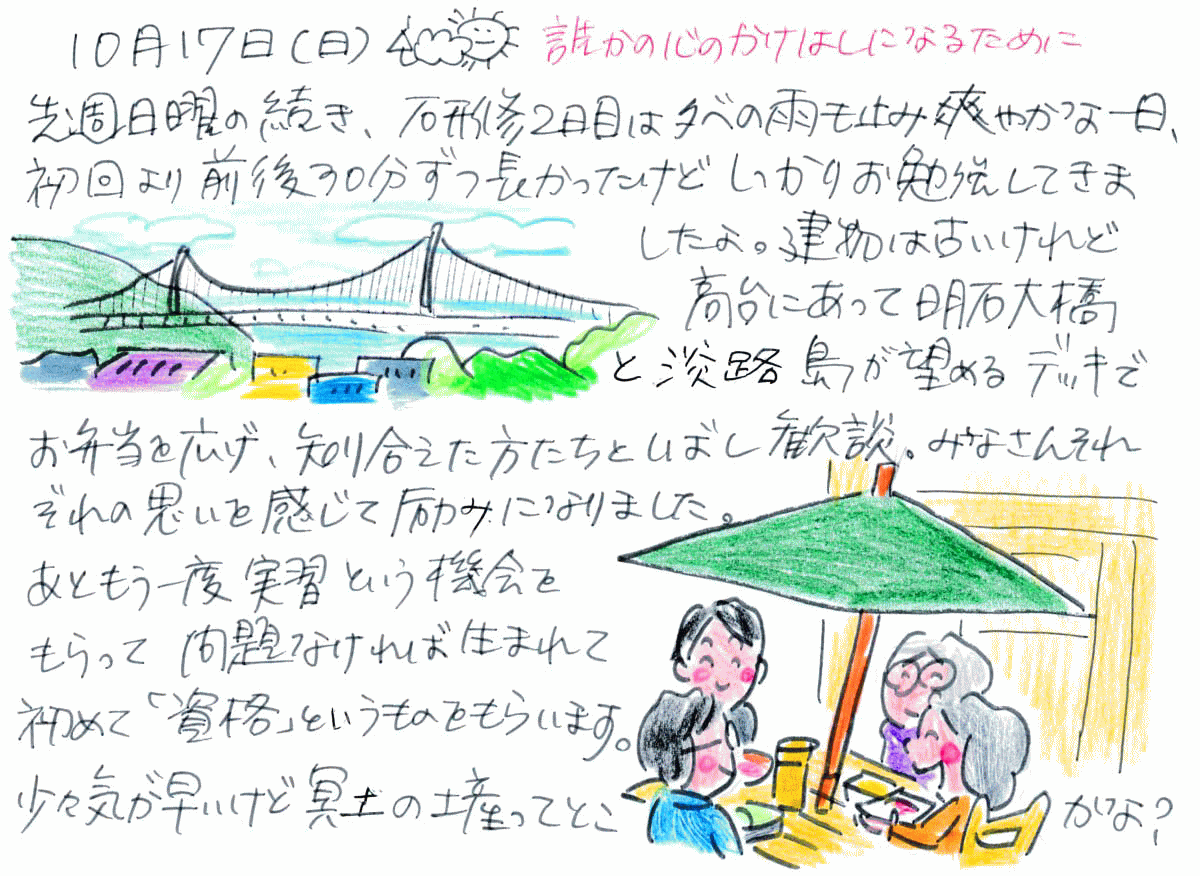 10月17日(日) 誰かの心のかけはしになるために
先週日曜の続き、研修2日目は夕べの雨も止み爽やかな一日、
初回より前後30分ずつ長かったけどしっかりお勉強してきま
したよ。建物は古いけれど
高台にあって明石大橋
と淡路島が望めるデッキで
お弁当を広げ、知り合えた方たちとしばし歓談。みなさんそれ
ぞれの思いを感じて励みになりました。
あともう一度実習という機会を
もらって問題なければ生まれて
初めて「資格」というものをもらいます。
少々気が早いけど冥土の土産ってとこかな?